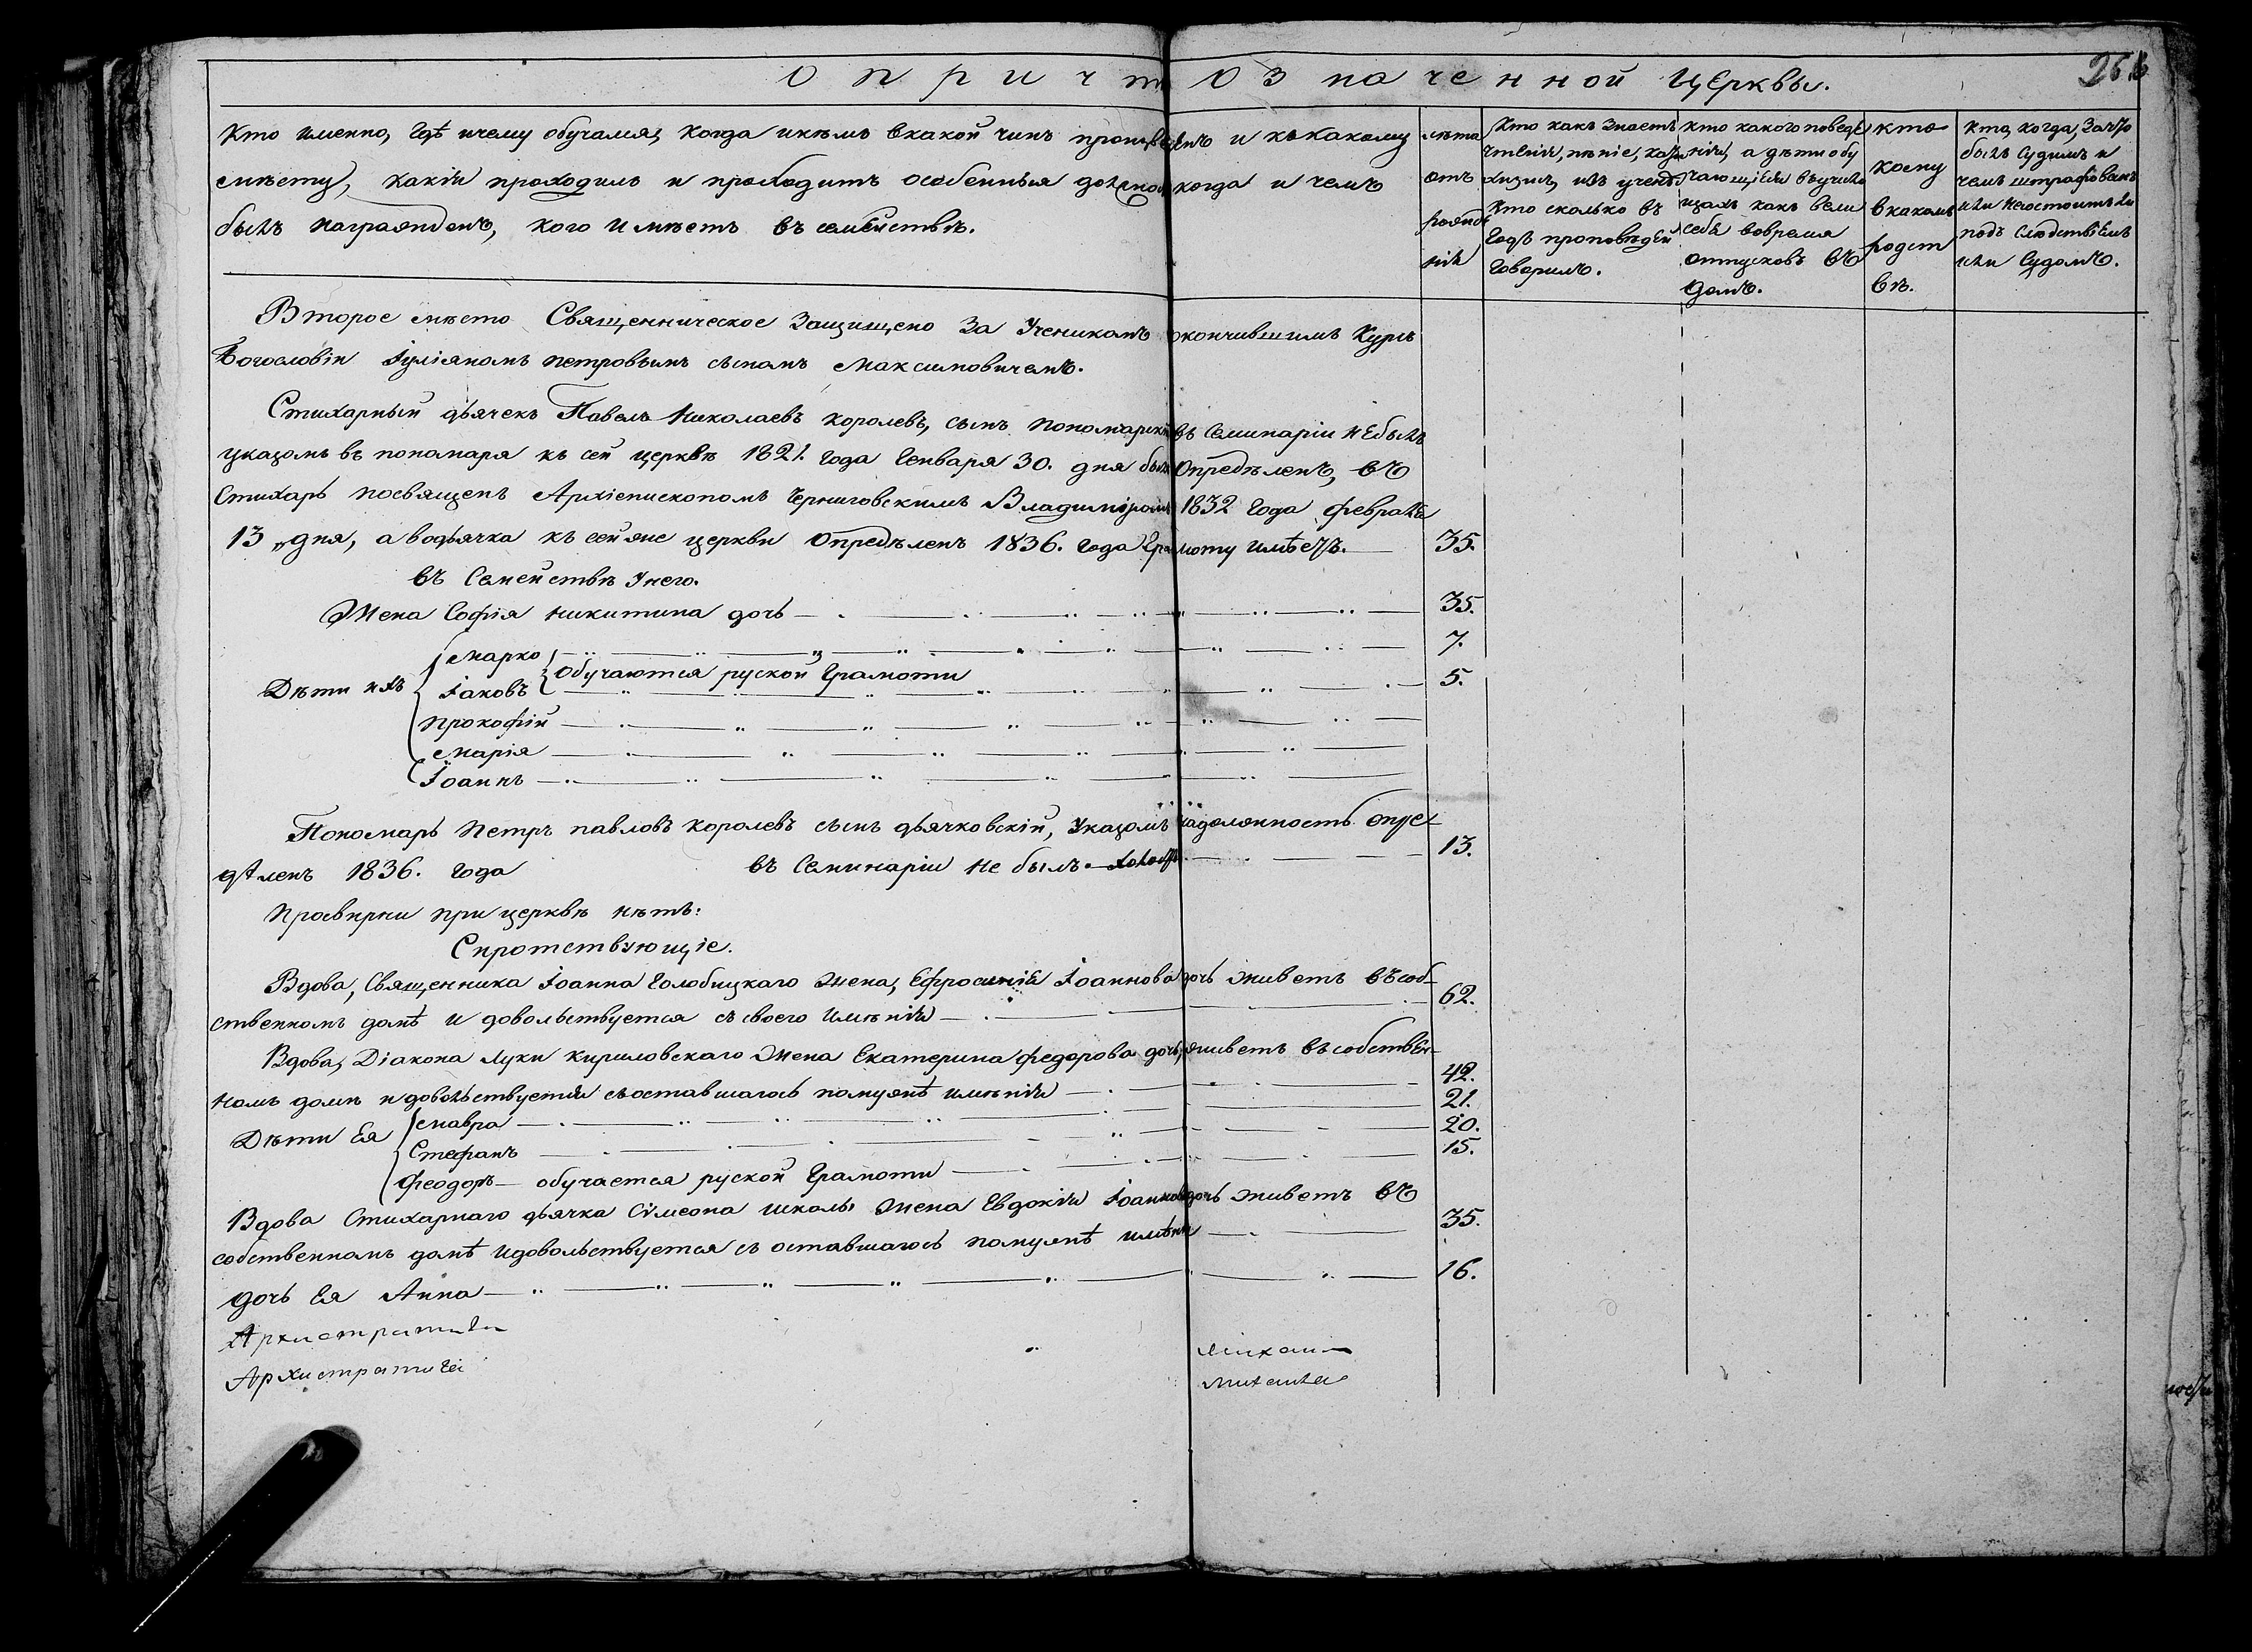 о при ч т о з на че н ной Церквы.
Кто именно, гдѣ ичему обучался, когда икѣмъ вкакой чинъ произведенъ и ккакому
мѣсту, какія проходилъ и проходитъ особенныя должнос когда и чемъ
былъ награжденъ, кого имѣетъ въ семействѣ.
лѣта
отъ
рожде
нія
Кто какъ знаетъ
чтеніе, пѣніе, кати
хизисъ, изъ учены
кто сколько въ
годъ проповѣдей
говорилъ.
кто какого поведе
нія, а дѣти обу
чающіеся въучили
щахъ какъ вели
себя вовремя
отпусковъ въ
домъ.
кто
кому
вкакомъ
родст
вѣ.
Кто, когда, зачто
былъ судимъ и
чемъ штрафованъ
или несостоитъ ли
подъ слѣдствіемъ
или судомъ.
Второе мѣсто Священническое Защищено За Ученикомъ окончившимъ Курсъ
Богословіи Іуліаномъ Петровымъ сыномъ Максимовичемъ.
Стихарный дьячекъ Павелъ Николаевъ Королевъ, сынъ пономарскій въ Семинаріи небылъ
указомъ въ пономаря къ сей церквѣ 1821. года Генваря 30. дня былъ Опредѣленъ, въ
Стихарь посвященъ Архіепископомъ Черниговскимъ Владиміромъ 1832 года февраля
13 дня, а водьячка къ сейже церкви Опредѣленъ 1836. года Грамоту имѣетъ. 35.
въ Семействѣ Унего.
Жена Софія Никитина дочь 35.
Марко 7.
Обучаются руской Грамоти
Дѣти ихъ Іаковъ 5.
Прокофій
Марія
Іоаннъ
Пономарь Петръ павловъ Королевъ сынъ дьячковскій, Указомъ надолжность опре-
дѣленъ 1836. года въ Семинаріи не былъ. Холостъ 13.
Просвирни при церквѣ нѣтъ:
Сиротствующіе.
Вдова, Священника Іоанна Голобицкаго Жена, Ефросинія Іоаннова дочь живетъ въсоб-
ственномъ домѣ и довольствуется съ своего имѣнія 62.
Вдова, Діакона Луки Кириловскаго Жена Екатерина Федорова дочь, живетъ въсобствен-
номъ домѣ идовольствуется съоставшагось помужѣ имѣнія 42.
Дѣти Ея Мавра 21.
Стефанъ 20.
Феодоръ обучается руской Грамоти 15.
Вдова Стихарнаго дьячка Сімеона Школы Жена Евдокія Іоаннова дочь живетъ въ
собственномъ домѣ идовольствуется съ оставшагось помужѣ имѣнія 35.
дочь Ея Анна 16.
Архистратига Михаи
Архистратига Михаила